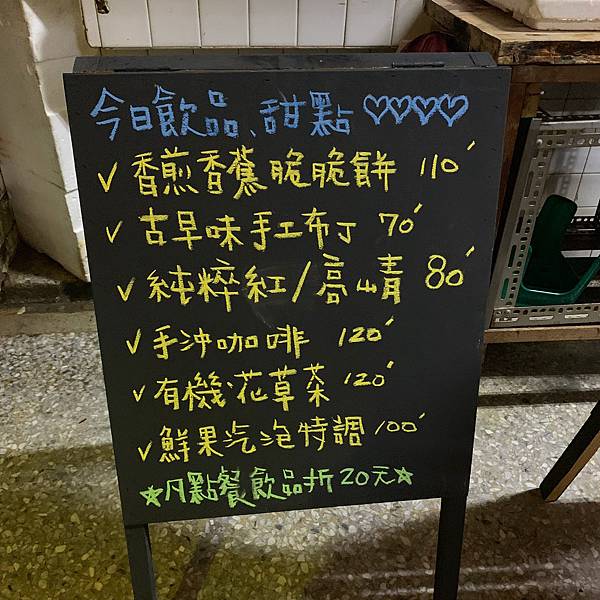 今日飲品、甜點 ♡♡♡♡
✓ 香煎香蕉脆脆餅 110'
✓ 古早味手工布丁 70'
✓ 純粹紅/高山青 80'
✓ 手沖咖啡 120'
✓ 有機花草茶 120'
✓ 鮮果汽泡特調 100'
★凡點餐飲品折20元★